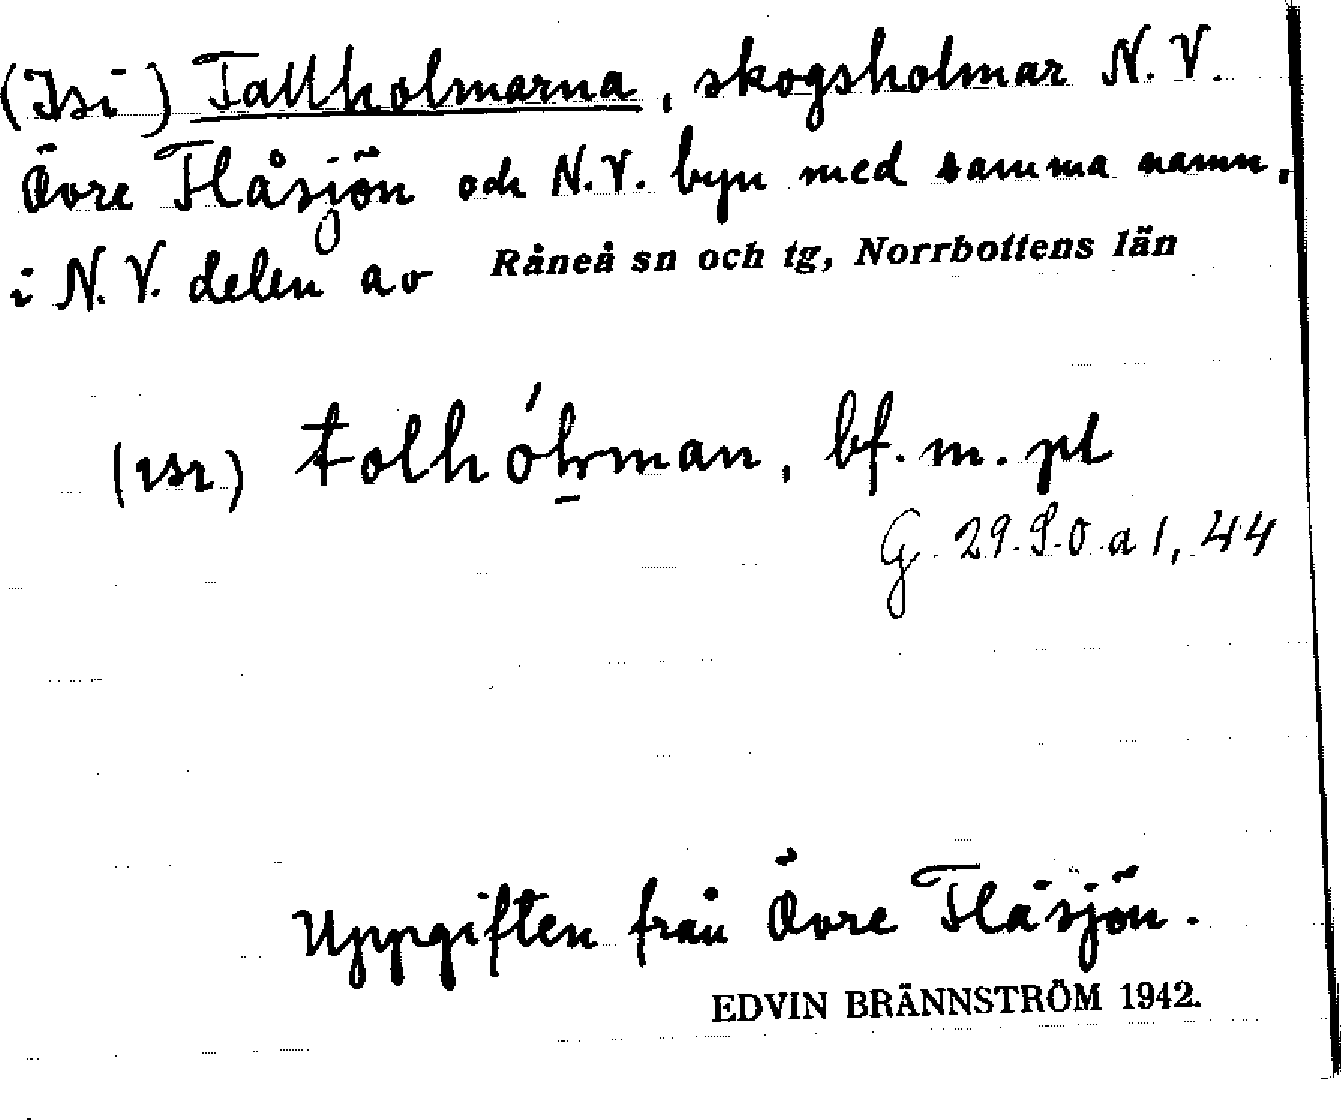 (Isi) Tallholmarna, skogsholmar N.V.
Övre Flåsjön och N.V. byn med samma namn,
i N.V. delen av Råneå sn och tg, Norrbottens län
(ısı) tolhólman, bf. m. pl
G 29.9.0 a 1, 44
Uppgiften från Övre Flåsjön.
EDVIN BRÄNNSTRÖM 1942.